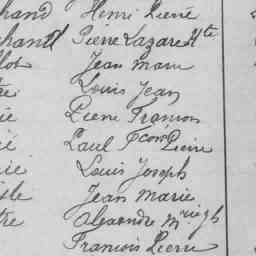 hand Henri Pierre
chantl Pierre Lazare Hte
lot Jean marie
Louis Jean
ie Pierre François
ié Paul Fcois Pierre
rie Louis Joseph
Jean Marie
tre Alexandre M
François Pierre